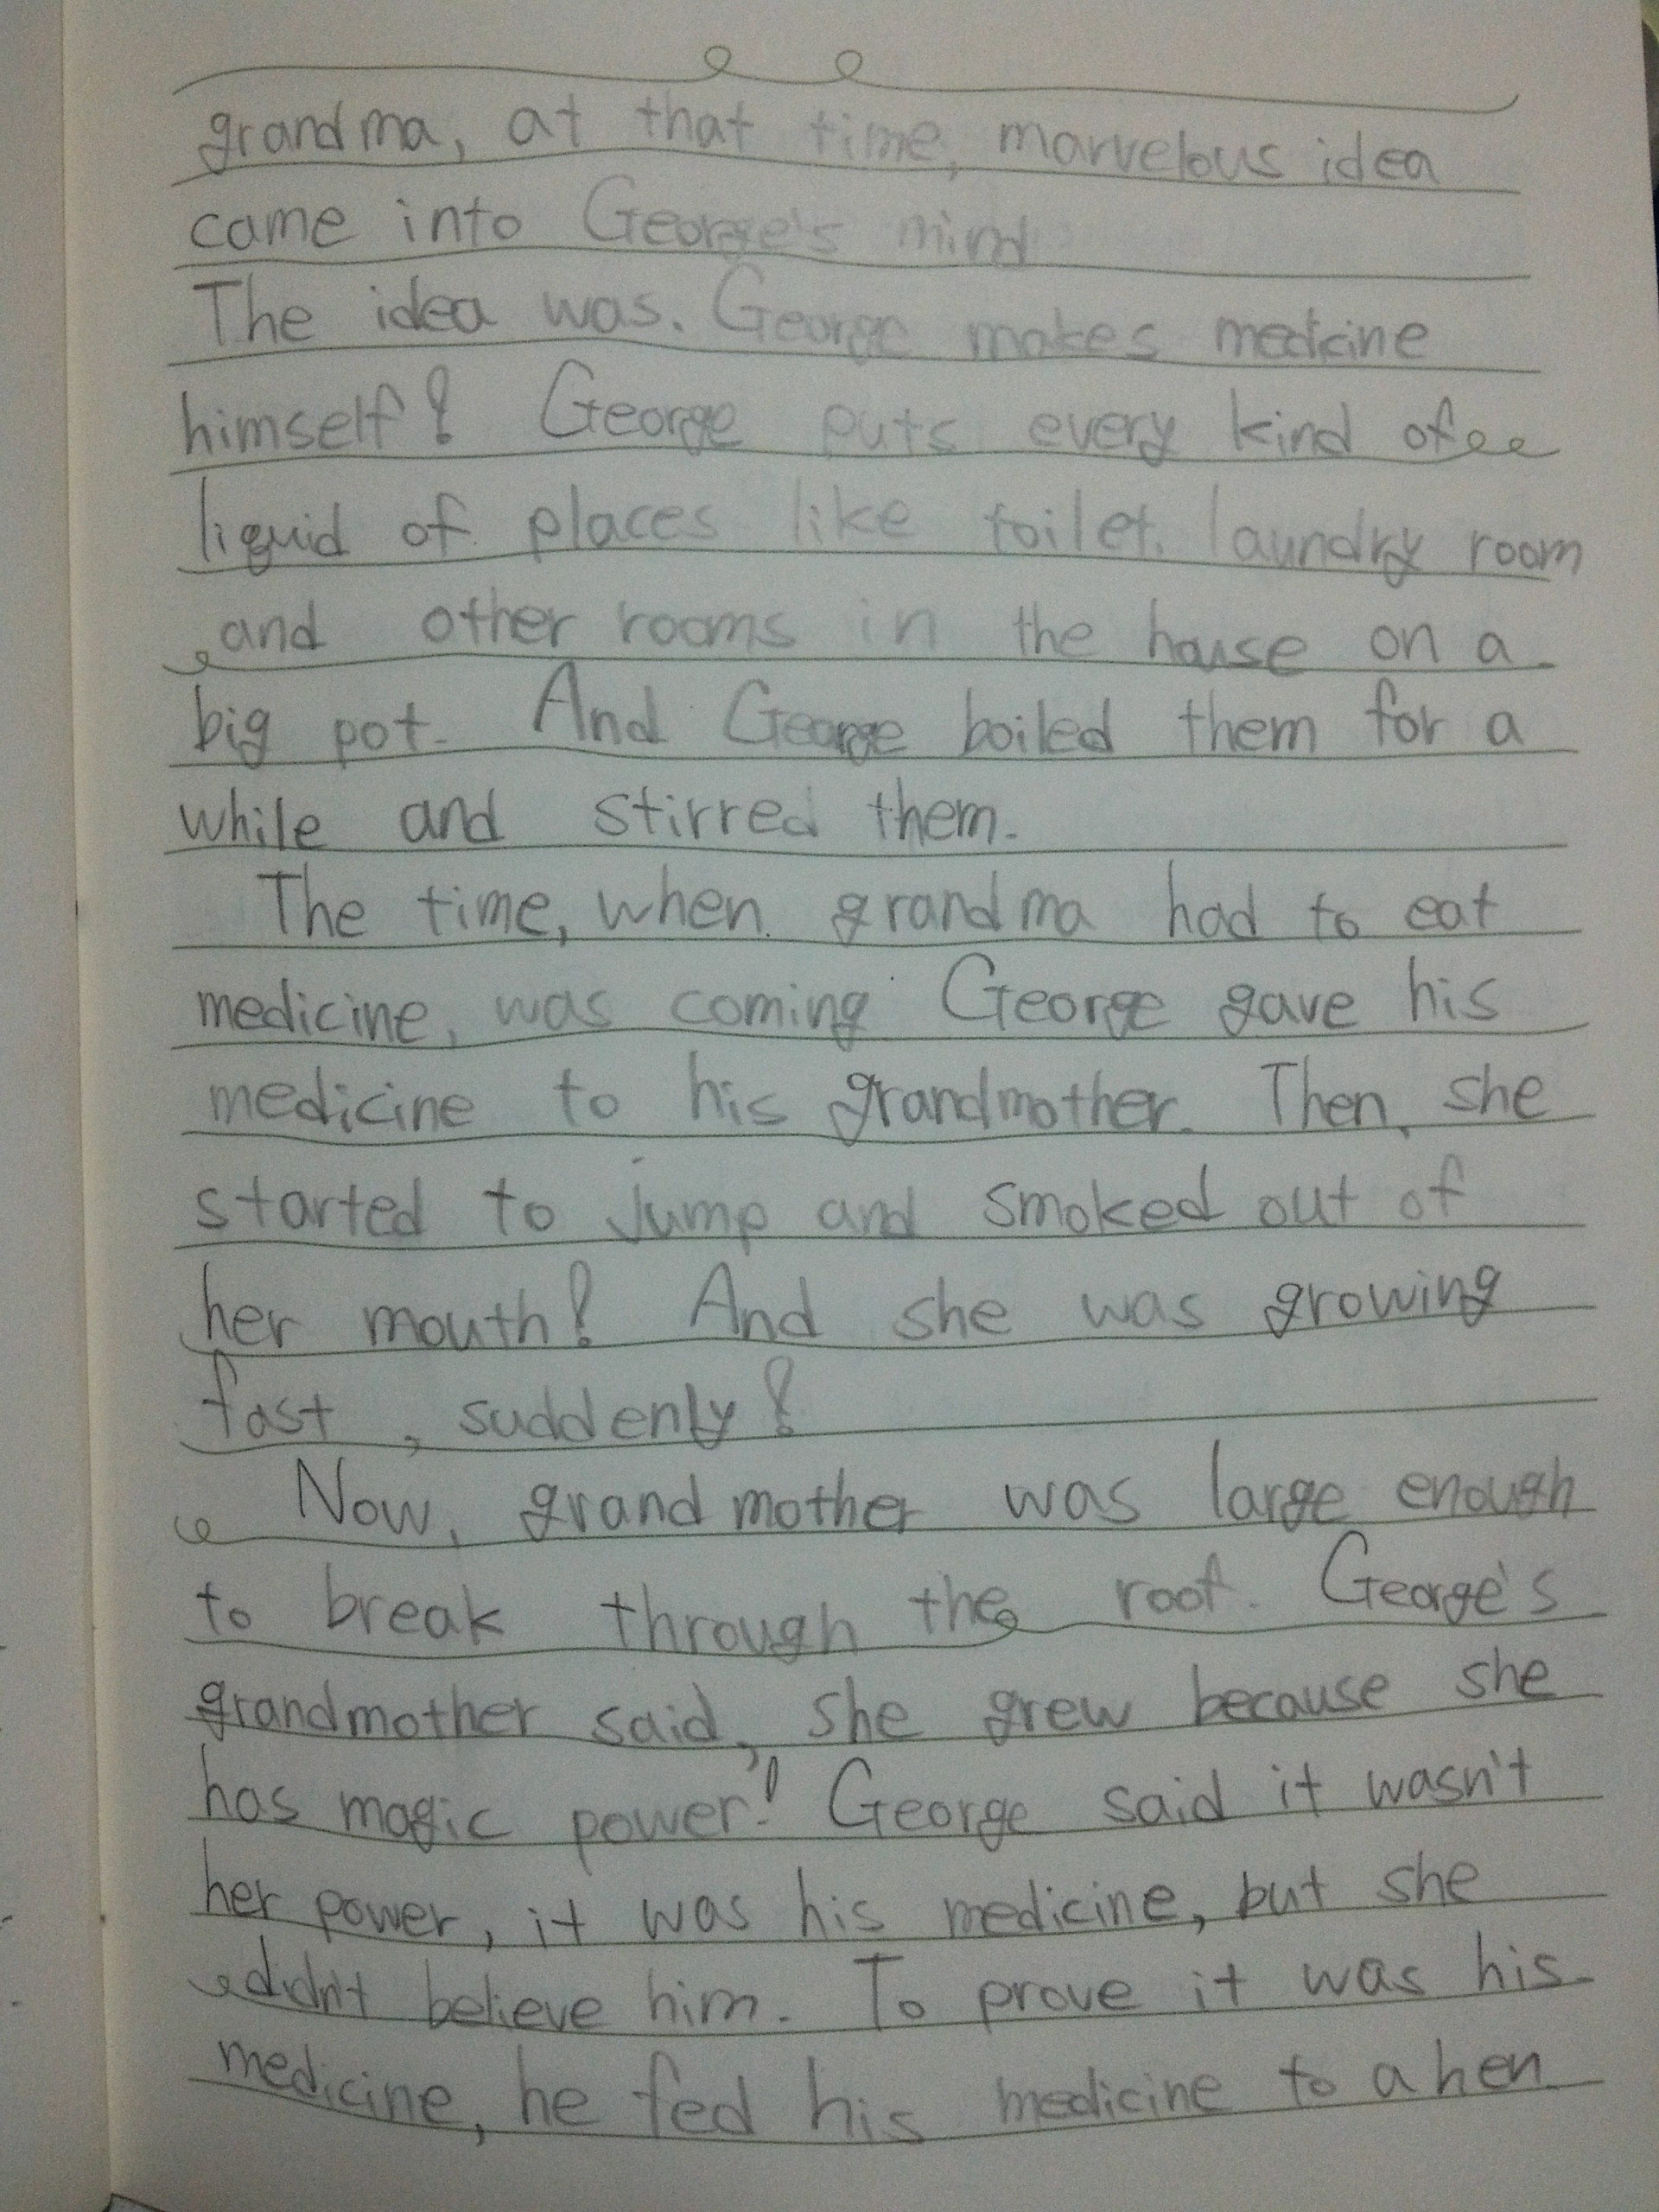 grandma, at that time, marvelous idea
came into George's mind
The idea was. George makes medicine
himself! George puts every kind of
liquid of places like toilet. laundry room
and other rooms in the house on a
big pot. And George boiled them for a
while and stirred them.
The time, when grandma had to eat
medicine, was coming George gave his
medicine to his grandmother. Then, she
started to jump and smoked out of
her mouth! And she was growing
fast, suddenly!
Now, grandmother was large enough
to break through the roof. George's
grandmother said, she grew because she
has magic power! George said it wasn't
her power, it was his medicine, but she
didn't believe him. To prove it was his
medicine, he fed his medicine to a hen